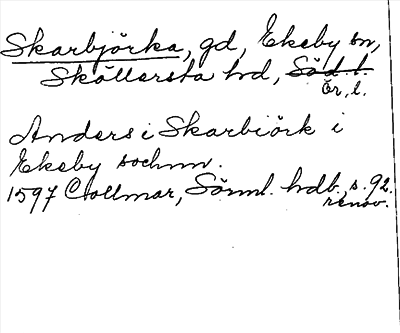 Skarbjörka, gd, Ekeby sn,
Sköllersta hd, Söd. l.
Ör. l.
Anders i Skarbiörk i
Ekeby sochnn.
1597 Collmar, Sörml. hdb. s. 92.
renov.